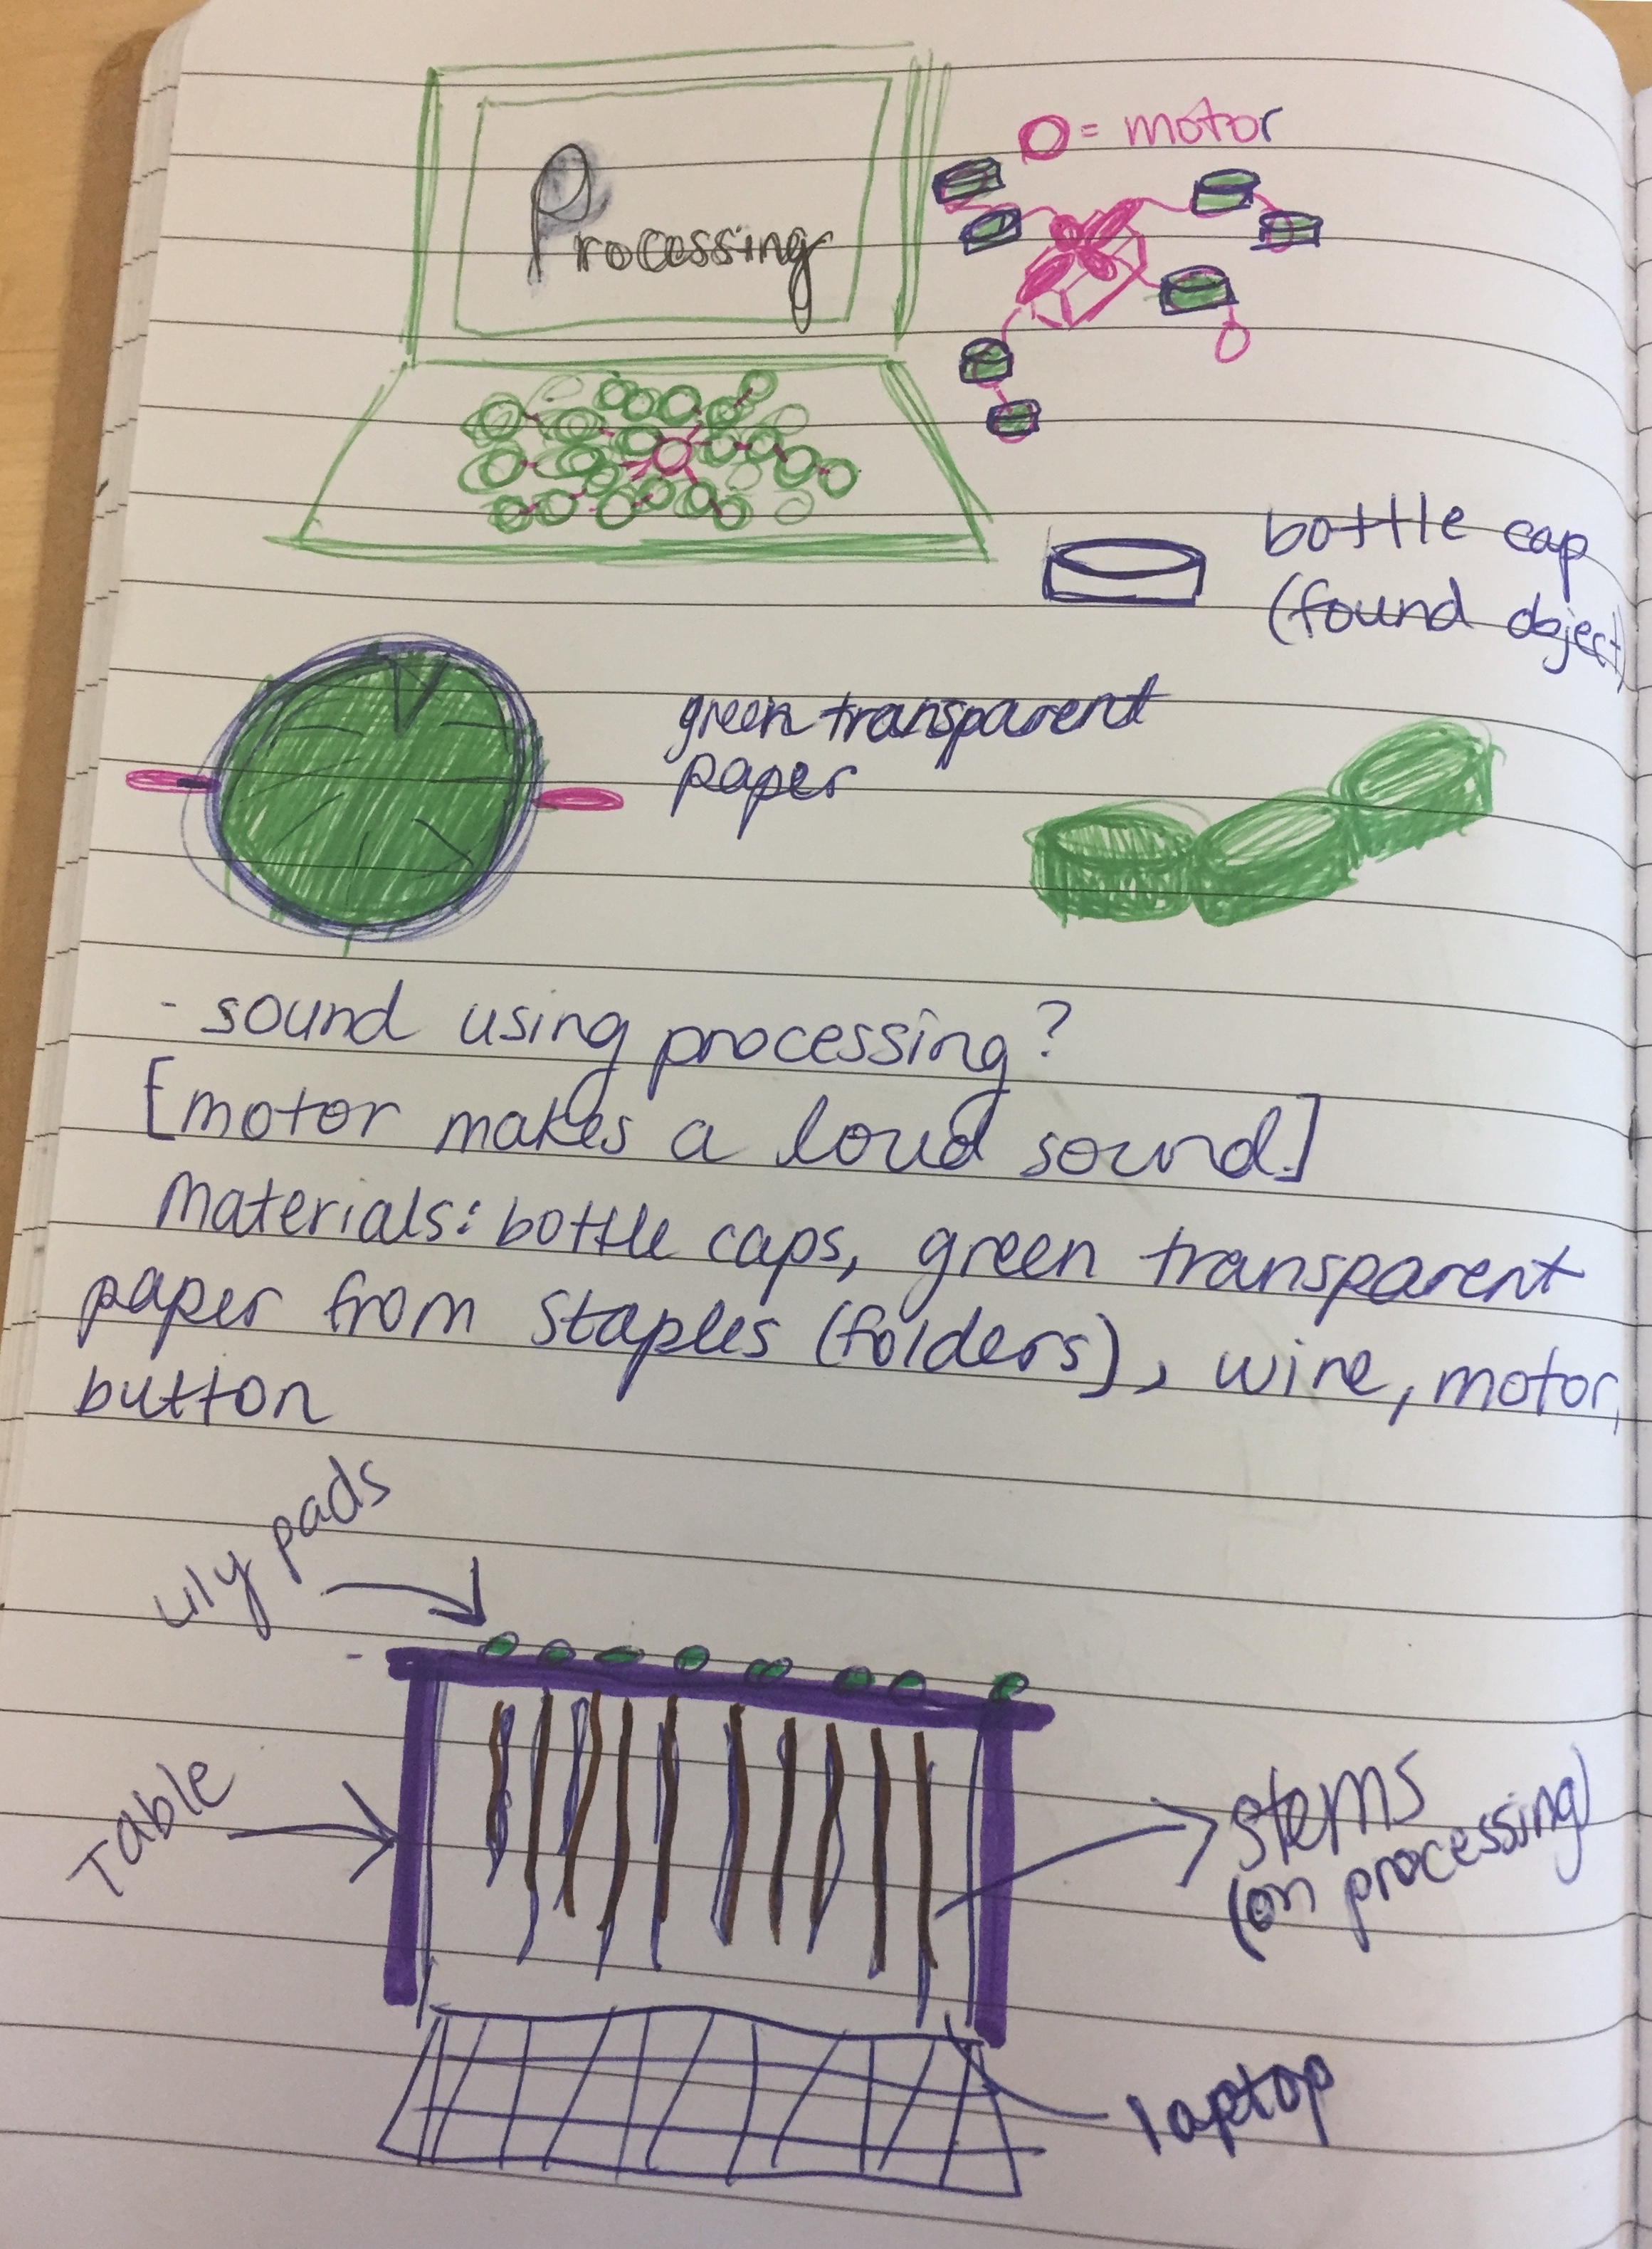 Processing
O = motor
bottle cap
(found object)
green transparent
paper
- sound using processing?
[motor makes a loud sound]
Materials: bottle caps, green transparent
paper from Staples (folders), wire, motor,
button
lily pads
Table
stems
(on processing)
laptop